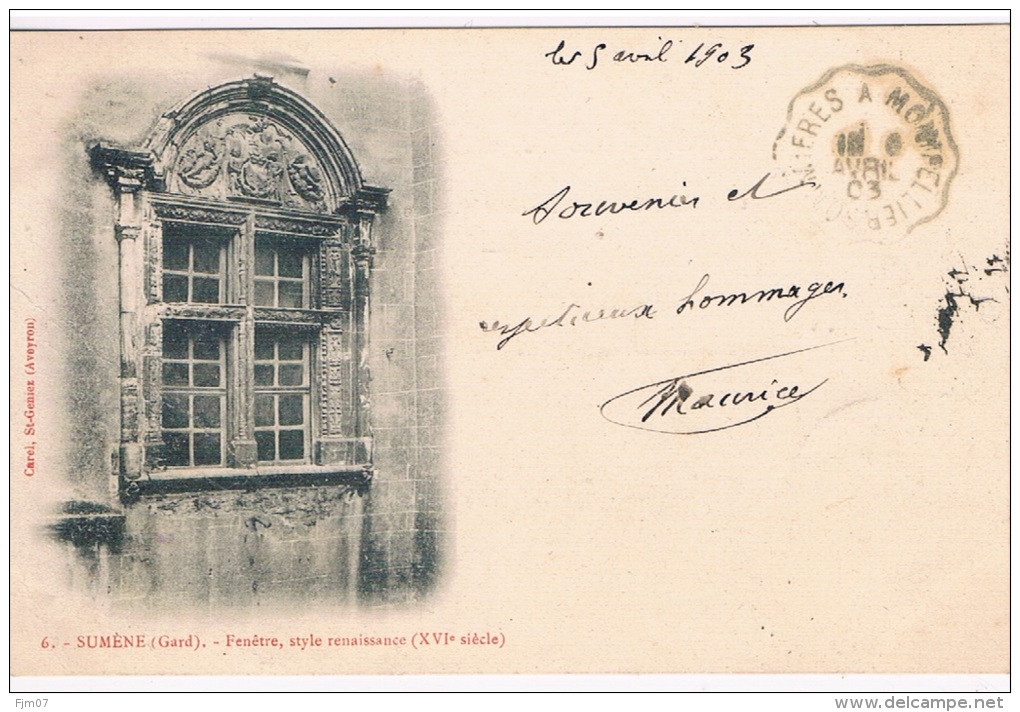 les 5 avril 1903
MIERES A MONTPELLIER
AVRIL
03
Souvenirs et
respectueux hommages
Maurice
Carel, St-Geniez (Aveyron)
6. - SUMÈNE (Gard). - Fenêtre, style renaissance (XVIe siècle)
Fjm07
www.delcampe.net